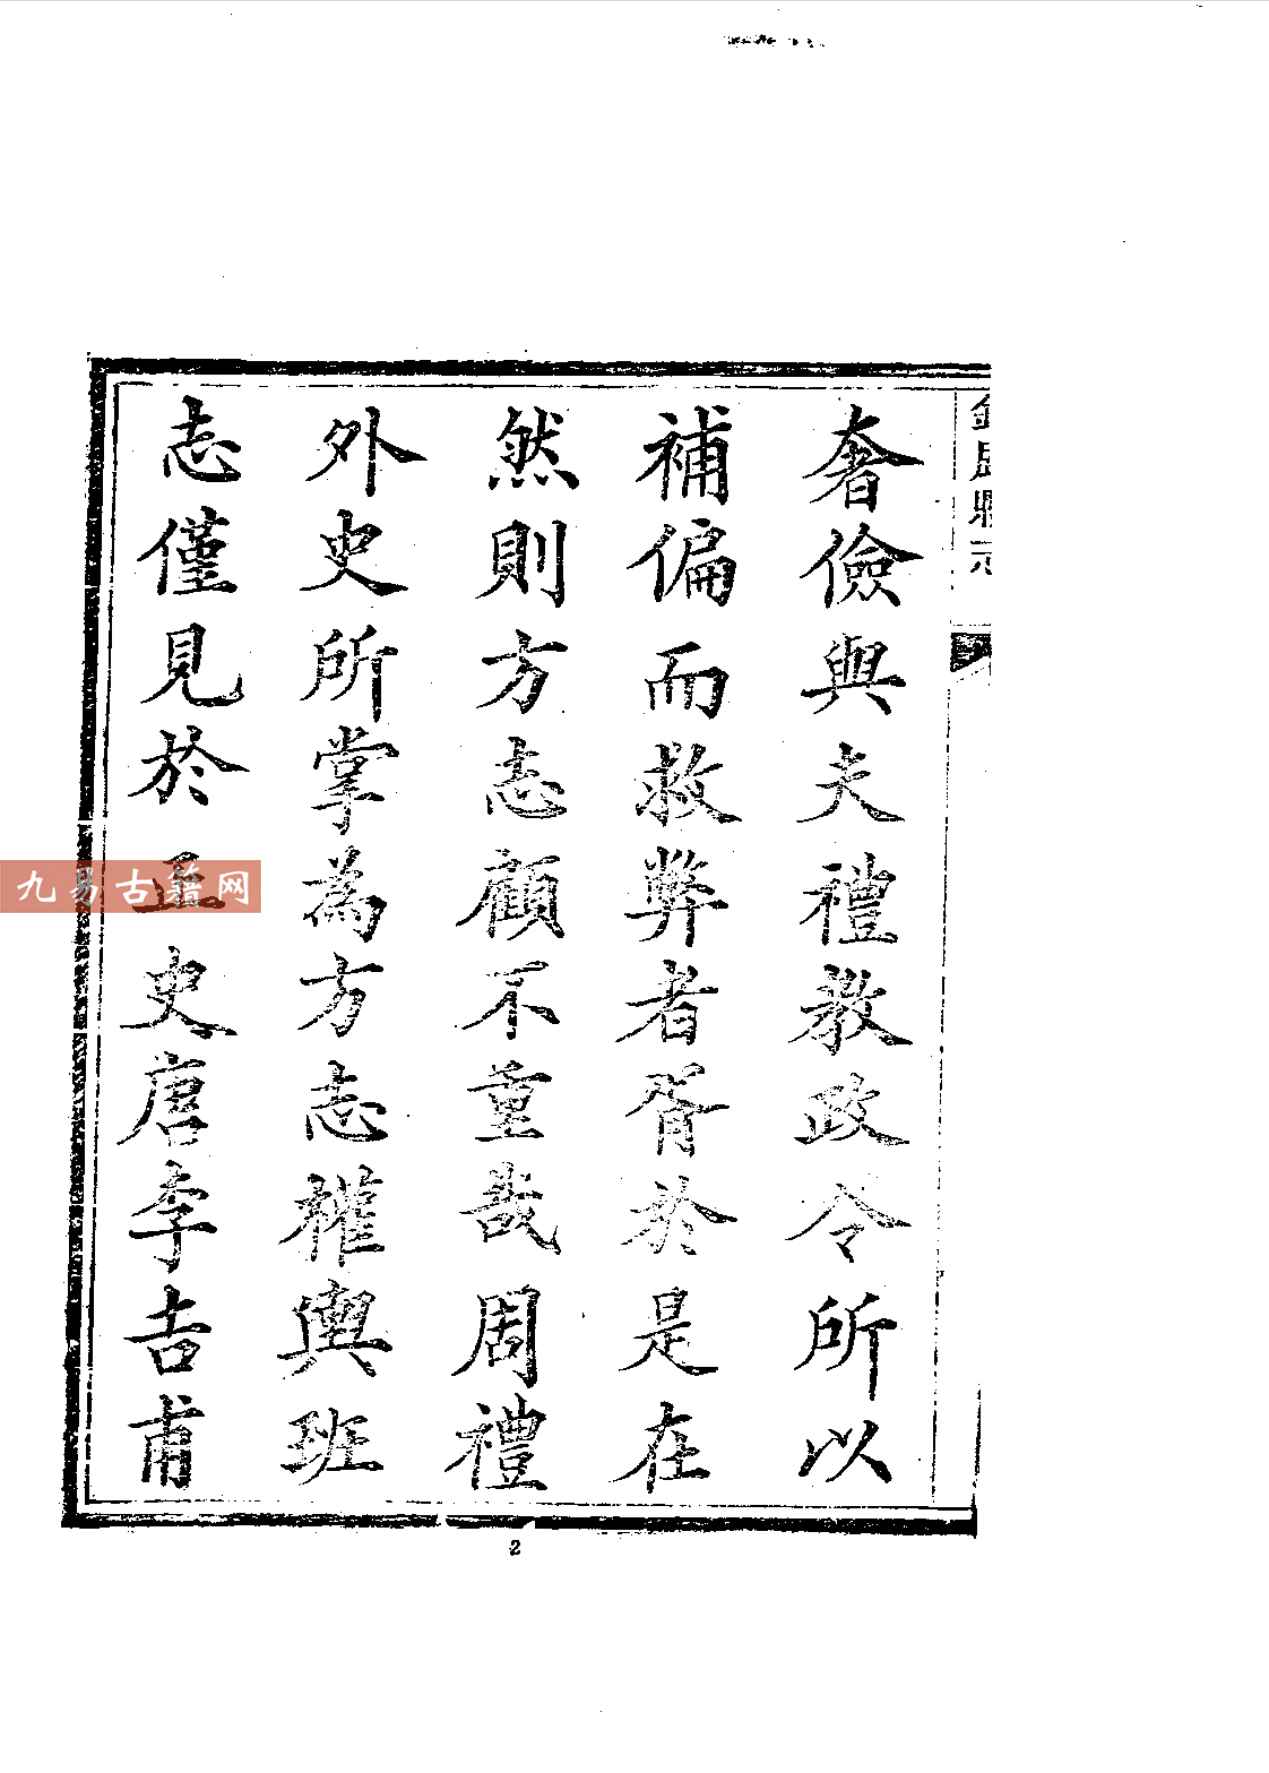 縣志
奢儉與夫禮教政令所以
補偏而救弊者胥於是在
然則方志顧不重哉周禮
外史所掌為方志權輿班
志僅見於正史唐李吉甫
九易古籍网
2